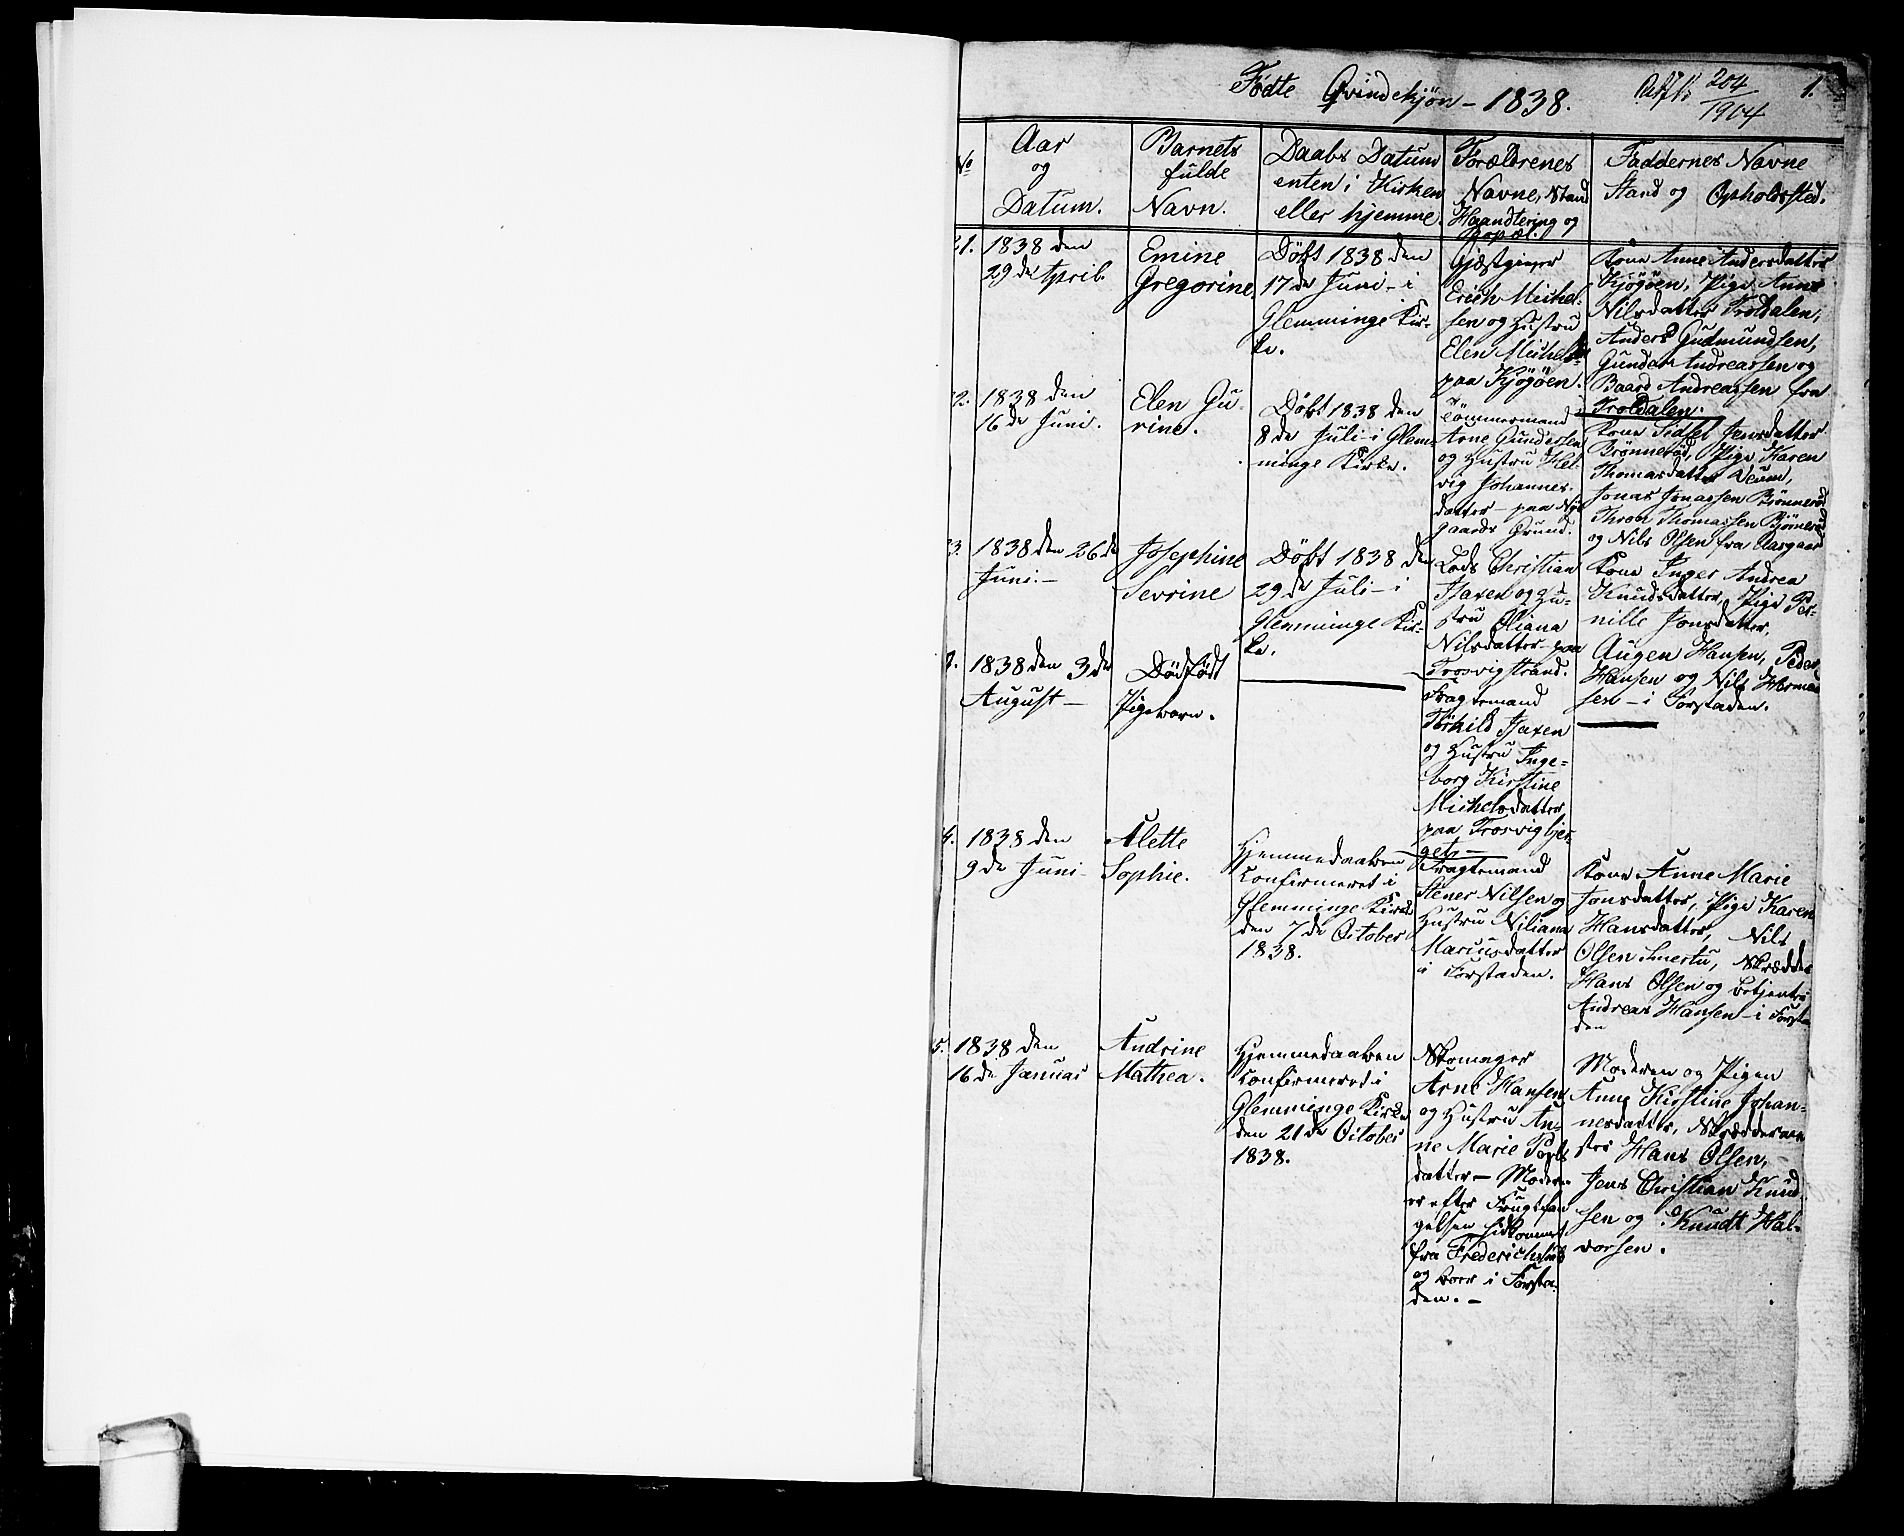 Fødte Qvindekjøn - 1838.
204
1904
1.
No
Aar
og
Datum.
Barnets
fulde
Navn.
Daabs Datum
enten i Kirken
eller hjemme.
Forældrenes
Navne, Stand
Haandtering og
Bopæl.
Faddernes Navne
Stand og Opholdssted.
21.
1838 den
29de April.
Emine
Gregorine.
Døbt 1838 den
17de Juni - i
Glemminge Kir-
ke.
Gjæstgiver
Erich Michel-
sen og Hustru
Elen Michels-
paa Kjøgøen.
Kone Anne Andersdatter
Kjøgøen, Pige Anne
Nilsdatter Troldalen,
Anders Gudmundsen,
Gunder Andreassen og
Baard Andreassen fra
Troldalen.
22.
1838 den
16de Juni.
Elen Gu-
rine.
Døbt 1838 den
8de Juli - i Glem-
minge Kirke.
Tømmermand
Arne Gundersen
og Hustru Hel-
vig Johannes-
datter - paa Ny-
gaards Grund.
Kone Sidsel Jensdatter
Brønnerød, Pige Karen
Thomasdatter Veum,
Jonas Jonassen Brønnerød
Thron Thomassen Bjørnerød
og Nils Olsen fra Aasgaard
23.
1838 den 26de
Juni -
Josephine
Sevrine
Døbt 1838 den
29de Juli - i
Glemminge Kir-
ke.
Lods Christian
Isaxen og Hu-
stru Oliana
Nilsdatter - paa
Trosvigstrand.
Kone Inger Andrea
Knudsdatter, Pige Per-
nille Jonsdatter,
Augen Hansen, Peder
Hansen og Nils Herman-
sen - i Forstaden.
1838 den 3de
August -
Dødfødt
Pigebarn.
Fragtemand
Thorkild Isaxen
og Hustru Inge-
borg Kirstine
Michelsdatter
paa Trosvigbjer-
get. -
4.
1838 den
9de Juni -
Alette
Sophie.
Hjemmedaaben
Confirmeret i
Glemminge Kirke
den 7de October
1838.
Fragtemand
Stener Nilsen og
Hustru Niliana
Marcusdatter
i Forstaden.
Kone Anne Marie
Jonsdatter, Pige Karen
Hansdatter, Nils
Olsen Smertu, Skrædder
Hans Olsen og Betjent
Andreas Hansen - i Forsta-
den
5.
1838 den
16de Januar
Andrine
Mathea.
Hjemmedaaben
Confirmeret i
Glemminge Kirke
den 21de October
1838.
Skomager
Arne Hansen
og Hustru An-
ne Marie Pouls-
datter - Moderen
er efter Frugtsom-
gelsen hidkommet
fra Frederichshald
og boer i Forsta-
den. -
Moderen og Pigen
Anne Kirstine Johan-
nesdatter, Skræddermes-
ter Hans Olsen, -
Jens Christian Knud-
sen og Knudt Hal-
vorsen.